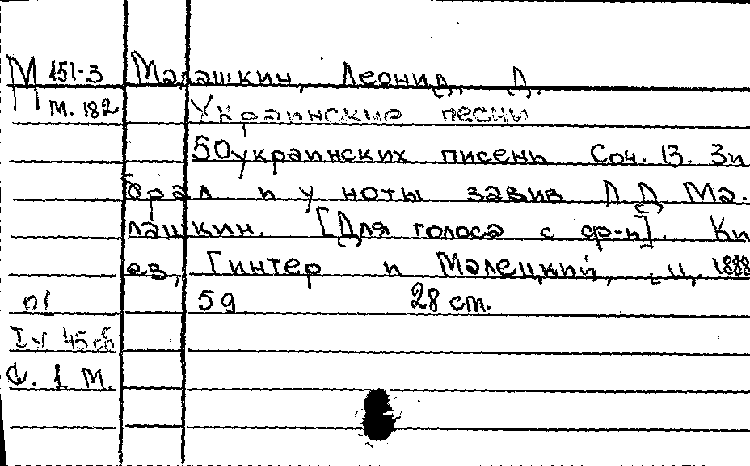 М 151-3 Малашкин, Леонид. Д.
м. 182 Украинские песни
50 украинских писень Соч. 13. Зи
брал и у ноты завив Л. Д. Ма-
лашкин. [Для голоса с ф-п]. Ки
ев, Гинтер и Малецкий, ц. 1888
01 59 28 cm.
IV 45
1 М.